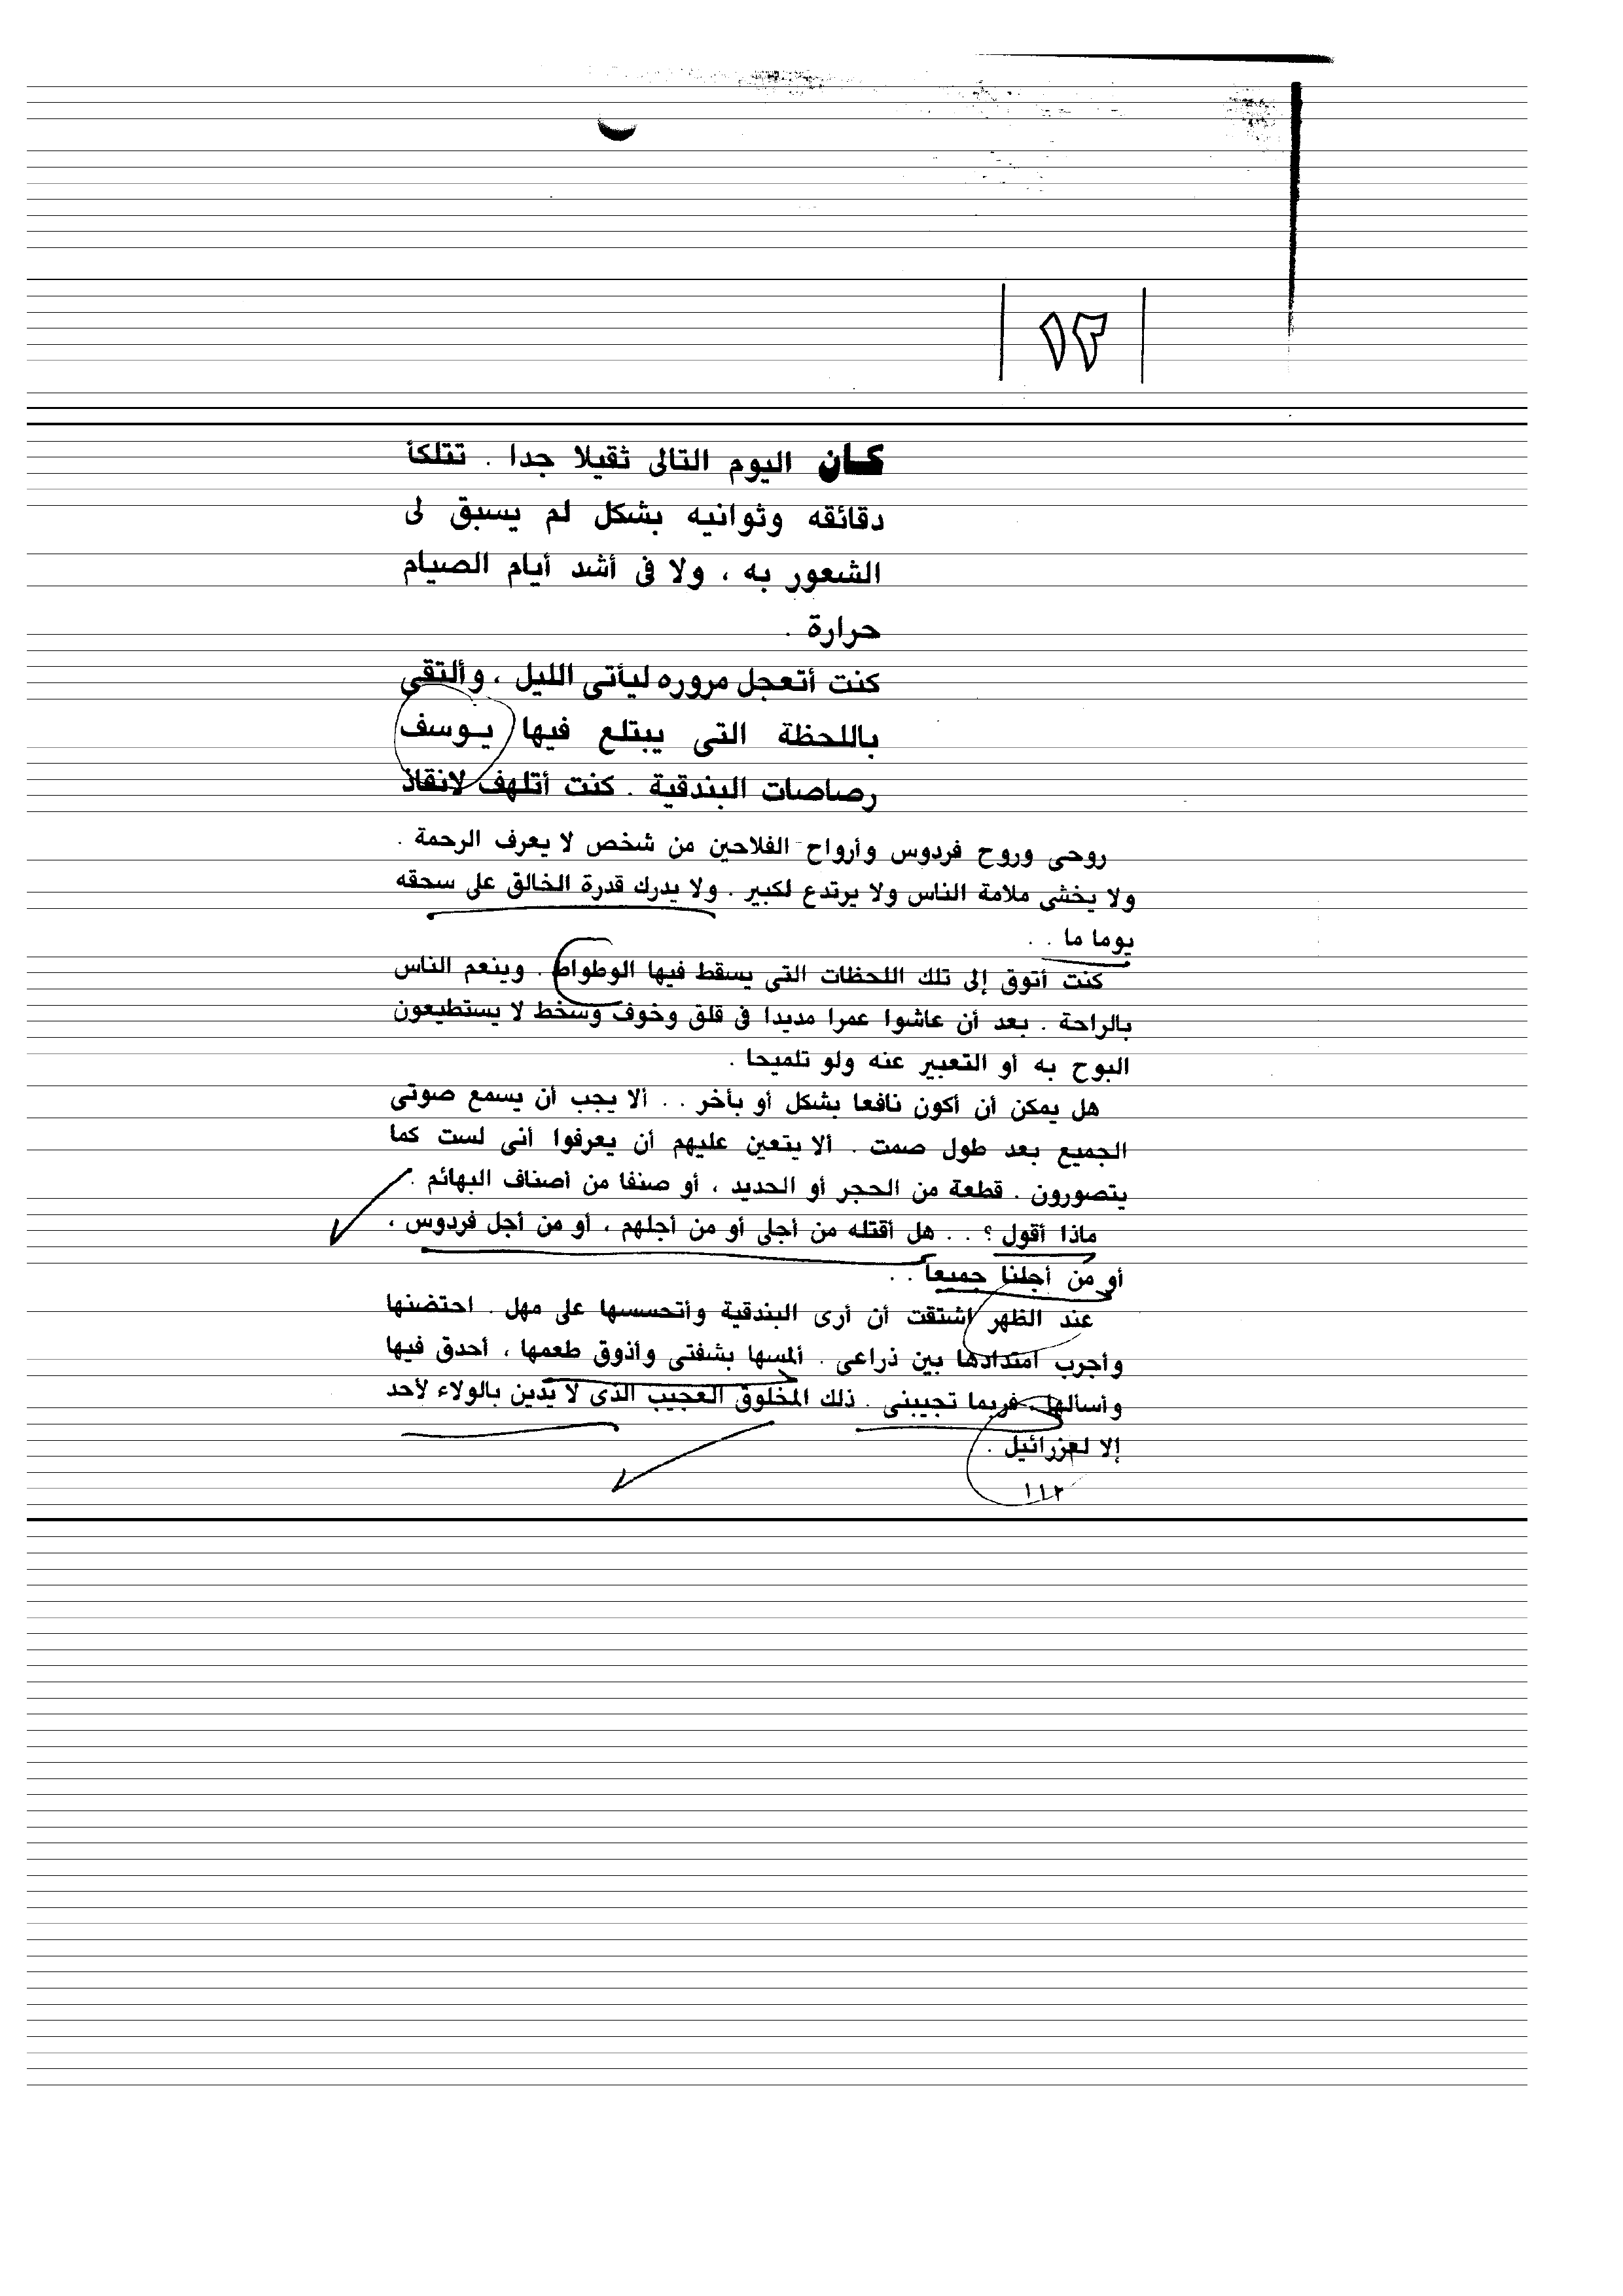 ١٢
كان اليوم التالى ثقيلا جدا . تتلكأ
دقائقه وثوانيه بشكل لم يسبق لى
الشعور به ، ولا فى أشد أيام الصيام
حرارة .
كنت أتعجل مروره ليأتى الليل ، وألتقى
باللحظة التى يبتلع فيها يوسف
رصاصات البندقية . كنت أتلهف لانقاذ
روحى وروح فردوس وأرواح الفلاحين من شخص لا يعرف الرحمة .
ولا يخشى ملامة الناس ولا يرتدع لكبير . ولا يدرك قدرة الخالق على سحقه
يوما ما . .
كنت أتوق إلى تلك اللحظات التى يسقط فيها الوطواط . وينعم الناس
بالراحة . بعد أن عاشوا عمرا مديدا فى قلق وخوف وسخط لا يستطيعون
البوح به أو التعبير عنه ولو تلميحا .
هل يمكن أن أكون نافعا بشكل أو بأخر . . ألا يجب أن يسمع صوتى
الجميع بعد طول صمت . ألا يتعين عليهم أن يعرفوا أنى لست كما
يتصورون . قطعة من الحجر أو الحديد ، أو صنفا من أصناف البهائم .
ماذا أقول ؟ . . هل أقتله من أجلى أو من أجلهم ، أو من أجل فردوس ،
أو من أجلنا جميعا . .
عند الظهر اشتقت أن أرى البندقية وأتحسسها على مهل . احتضنها
وأجرب امتدادها بين ذراعى . ألمسها بشفتى وأذوق طعمها ، أحدق فيها
وأسألها ، فربما تجيبنى . ذلك المخلوق العجيب الذى لا يدين بالولاء لأحد
إلا لعزرائيل .
١١٢